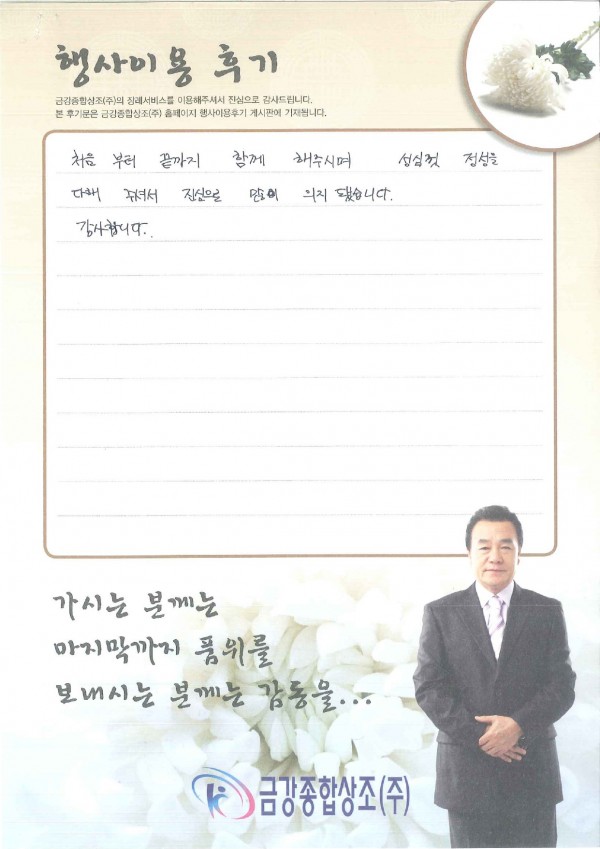 행사이용 후기
금강종합상조(주)의 장례서비스를 이용해주셔서 진심으로 감사드립니다.
본 후기문은 금강종합상조(주) 홈페이지 행사이용후기 게시판에 기재됩니다.
처음 부터 끝까지 함께 해주시며 성심껏 정성을
다해 주셔서 진심으로 많이 의지 됐습니다.
감사합니다.
가시는 분께는
마지막까지 품위를
보내시는 분께는 감동을...
금강종합상조(주)